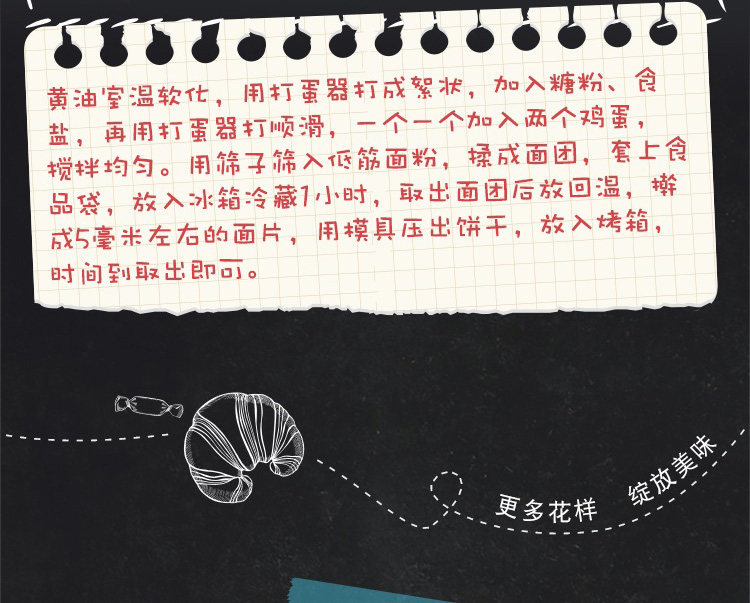 黄油室温软化，用打蛋器打成絮状，加入糖粉、食
盐，再用打蛋器打顺滑，一个一个加入两个鸡蛋，
搅拌均匀。用筛子筛入低筋面粉，揉成面团，套上食
品袋，放入冰箱冷藏1小时，取出面团后放回温，擀
成5毫米左右的面片，用模具压出饼干，放入烤箱，
时间到取出即可。
更多花样 绽放美味